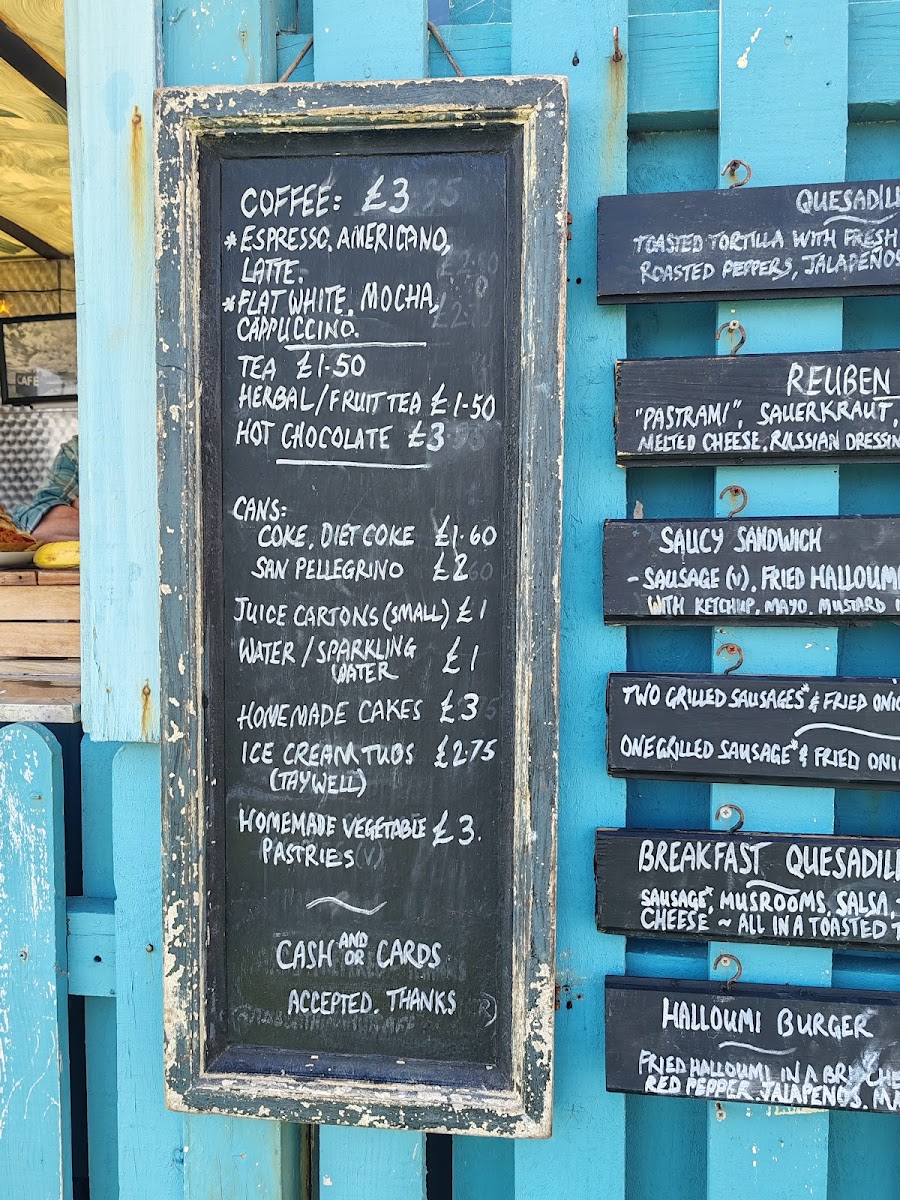 COFFEE: £3
*ESPRESSO, AMERICANO,
LATTE.
*FLAT WHITE, MOCHA,
CAPPUCCINO.
TEA £1-50
HERBAL/FRUIT TEA £1-50
HOT CHOCOLATE £3
CANS:
COKE, DIET COKE £1.60
SAN PELLEGRINO £2
JUICE CARTONS (SMALL) £1
WATER / SPARKLING £1
WATER
HOMEMADE CAKES £3
ICE CREAM TUBS £2.75
(TAYWELL)
HOMEMADE VEGETABLE £3.
PASTRIES (V)
CASH AND OR CARDS
ACCEPTED. THANKS
TOASTED TORTILLA WITH FRESH
ROASTED PEPPERS, JALAPEÑOS
REUBEN
"PASTRAMI", SAUERKRAUT,
MELTED CHEESE, RUSSIAN
SAUCY SANDWICH
- SAUSAGE (V), FRIED
WITH KETCHUP, MAYO, MUSTARD
TWO GRILLED SAUSAGES* & FRIED
ONE GRILLED SAUSAGE* & FRIED
BREAKFAST
SAUSAGE*, MUSROOMS, SALSA,
CHEESE ~ ALL IN A TOASTED
HALLOUMI BURGER
FRIED HALLOUMI IN A
RED PEPPER, JALAPEÑOS,
CAFE